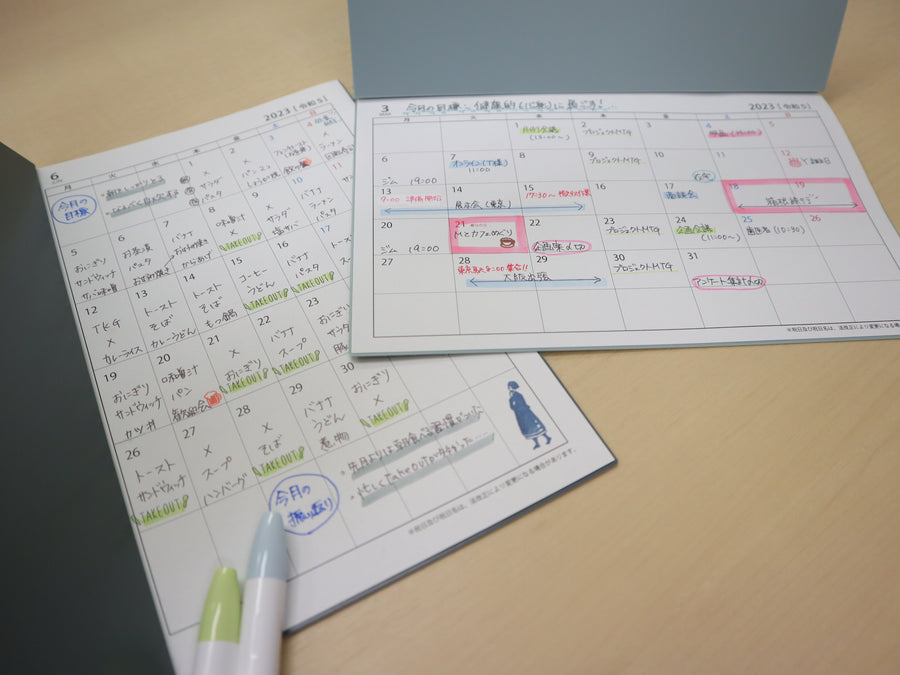 6
2023 [令和5]
月
火
水
木
金
今月の
目標
1
×
サラダ
2
×
3
4
×
ラーメン
5
おにぎり
サンドウィッチ
サバ味噌
6
お茶漬
パスタ
お好み焼き
7
バナナ
お好み焼き
からあげ
8
味噌汁
×
TAKEOUT
9
×
サラダ
塩サバ
10
バナナ
うどん
パスタ
12
TKG
×
カレーライス
13
トースト
そば
カレーうどん
14
トースト
そば
もつ鍋
15
コーヒー
うどん
TAKEOUT
16
バナナ
パスタ
TAKEOUT
17
19
おにぎり
サンドウィッチ
カツ丼
20
味噌汁
パン
歓迎会
21
×
おにぎり
TAKEOUT
22
バナナ
スープ
TAKEOUT
23
おにぎり
サラダ
26
トースト
サンドウィッチ
TAKEOUT
27
×
スープ
ハンバーグ
28
×
そば
TAKEOUT
29
バナナ
うどん
煮物
30
おにぎり
×
TAKEOUT
今月の
振り返り
・先月よりは朝食べる習慣がついた
・忙しくtakeoutが多かった……
※祝日及び祝日名は、法改正により変更になる場合があります。
3
今月の目標:健康的(心も)に過ごす!
2023 [令和5]
月
火
水
木
金
土
日
1
月初会議
(13:00〜)
2
プロジェクトMTG
3
4
5
6
ジム 19:00
7
11:00
8
9
プロジェクトMTG
10
11
12
13
9:00 準備開始
14
展示会(東京)
15
16
17
面談会
18
19
20
ジム 19:00
21
Mとカフェめぐり
22
企画案〆切
23
プロジェクトMTG
24
企画会議
(11:00〜)
25
歯医者(10:30)
26
27
28
東京駅 9:00 集合!!
大阪出張
29
30
プロジェクトMTG
31
アンケート集計〆切
※祝日及び祝日名は、法改正により変更になる場合